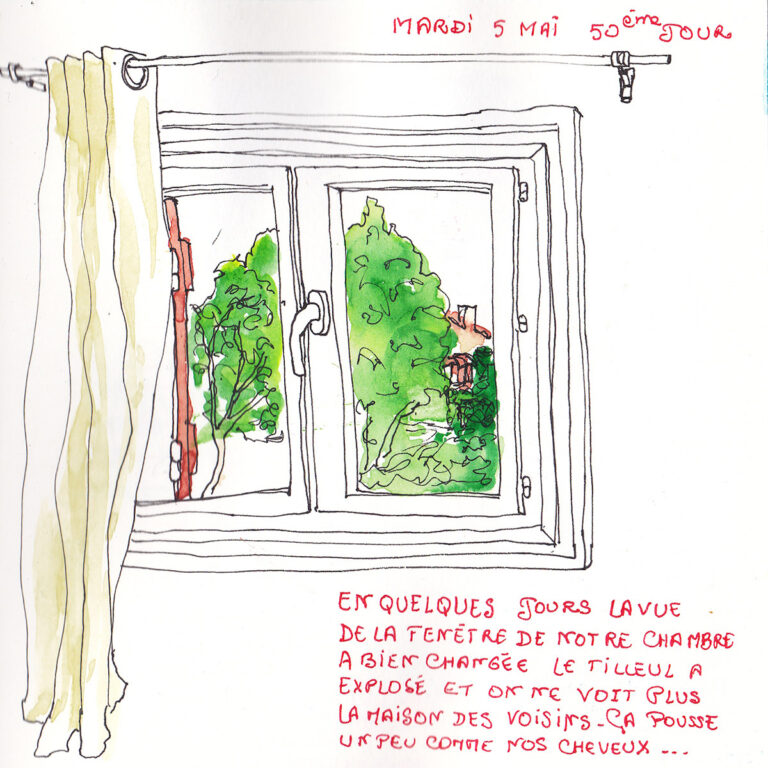 MARDI 5 MAI 50ème JOUR
EN QUELQUES JOURS LA VUE
DE LA FENÊTRE DE NOTRE CHAMBRE
A BIEN CHANGÉE LE TILLEUL A
EXPLOSÉ ET ON NE VOIT PLUS
LA MAISON DES VOISINS - ÇA POUSSE
UN PEU COMME NOS CHEVEUX ...